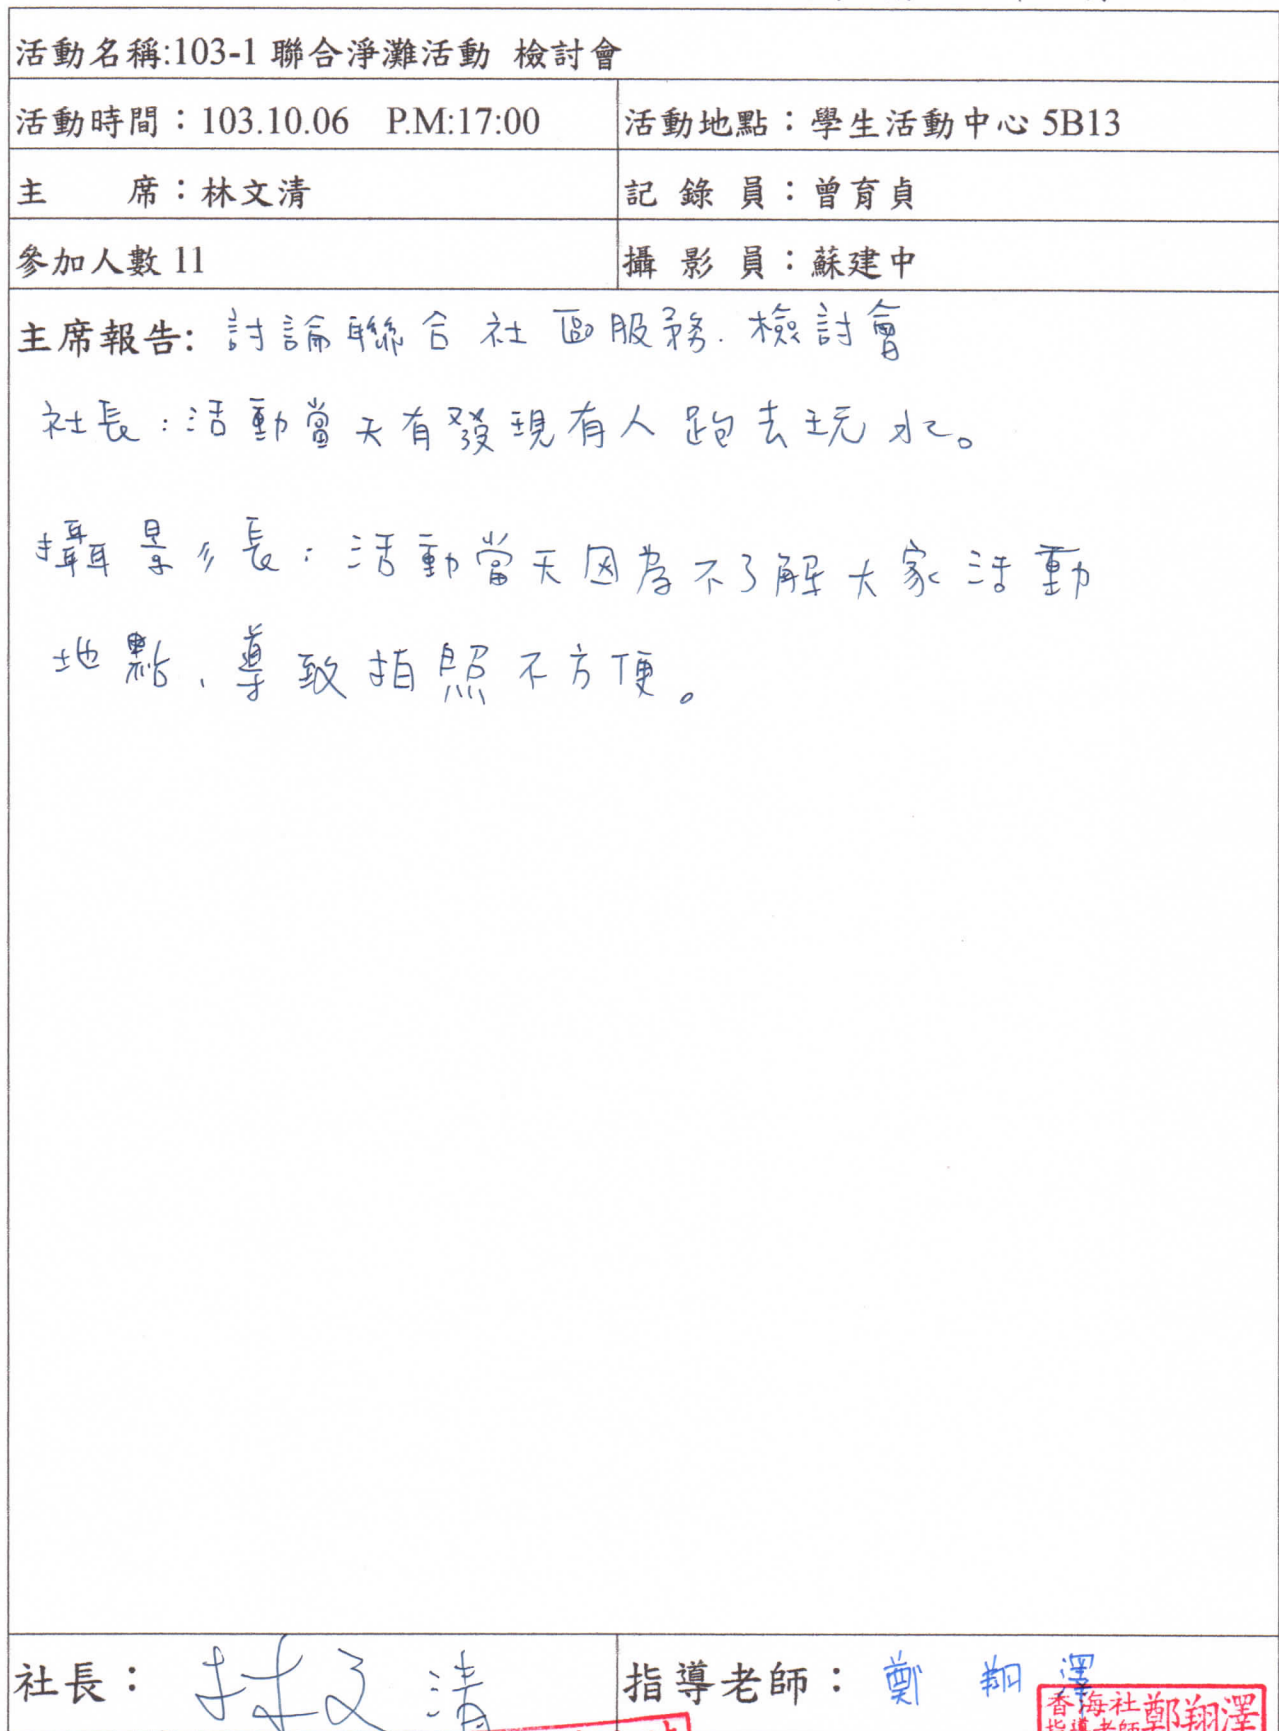 活動名稱:103-1 聯合淨灘活動 檢討會
活動時間：103.10.06 P.M:17:00
活動地點：學生活動中心 5B13
主 席：林文清
記 錄 員：曾育貞
參加人數 11
攝 影 員：蘇建中
主席報告: 討論聯合社區服務.檢討會
社長:活動當天有發現有人跑去玩水。
攝影長:活動當天因為不了解大家活動
地點、導致拍照不方便。
社長： 林文清
指導老師： 鄭翔澤
香海社
指導老師
鄭翔澤